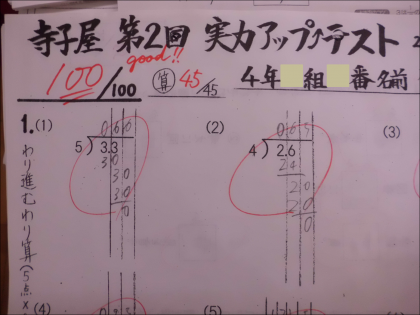 寺子屋 第2回 実力アップ↑テスト 2
good!!
100/100 算 45/45 4年 組 番 名前
1. (1) (2) (3)
わり進むわり算(5点×
0 6 6
5 ) 3.3
3 0
3 0
3 0
0
0 6 5
4 ) 2.6
2 4
2 0
2 0
0
(4) (5)